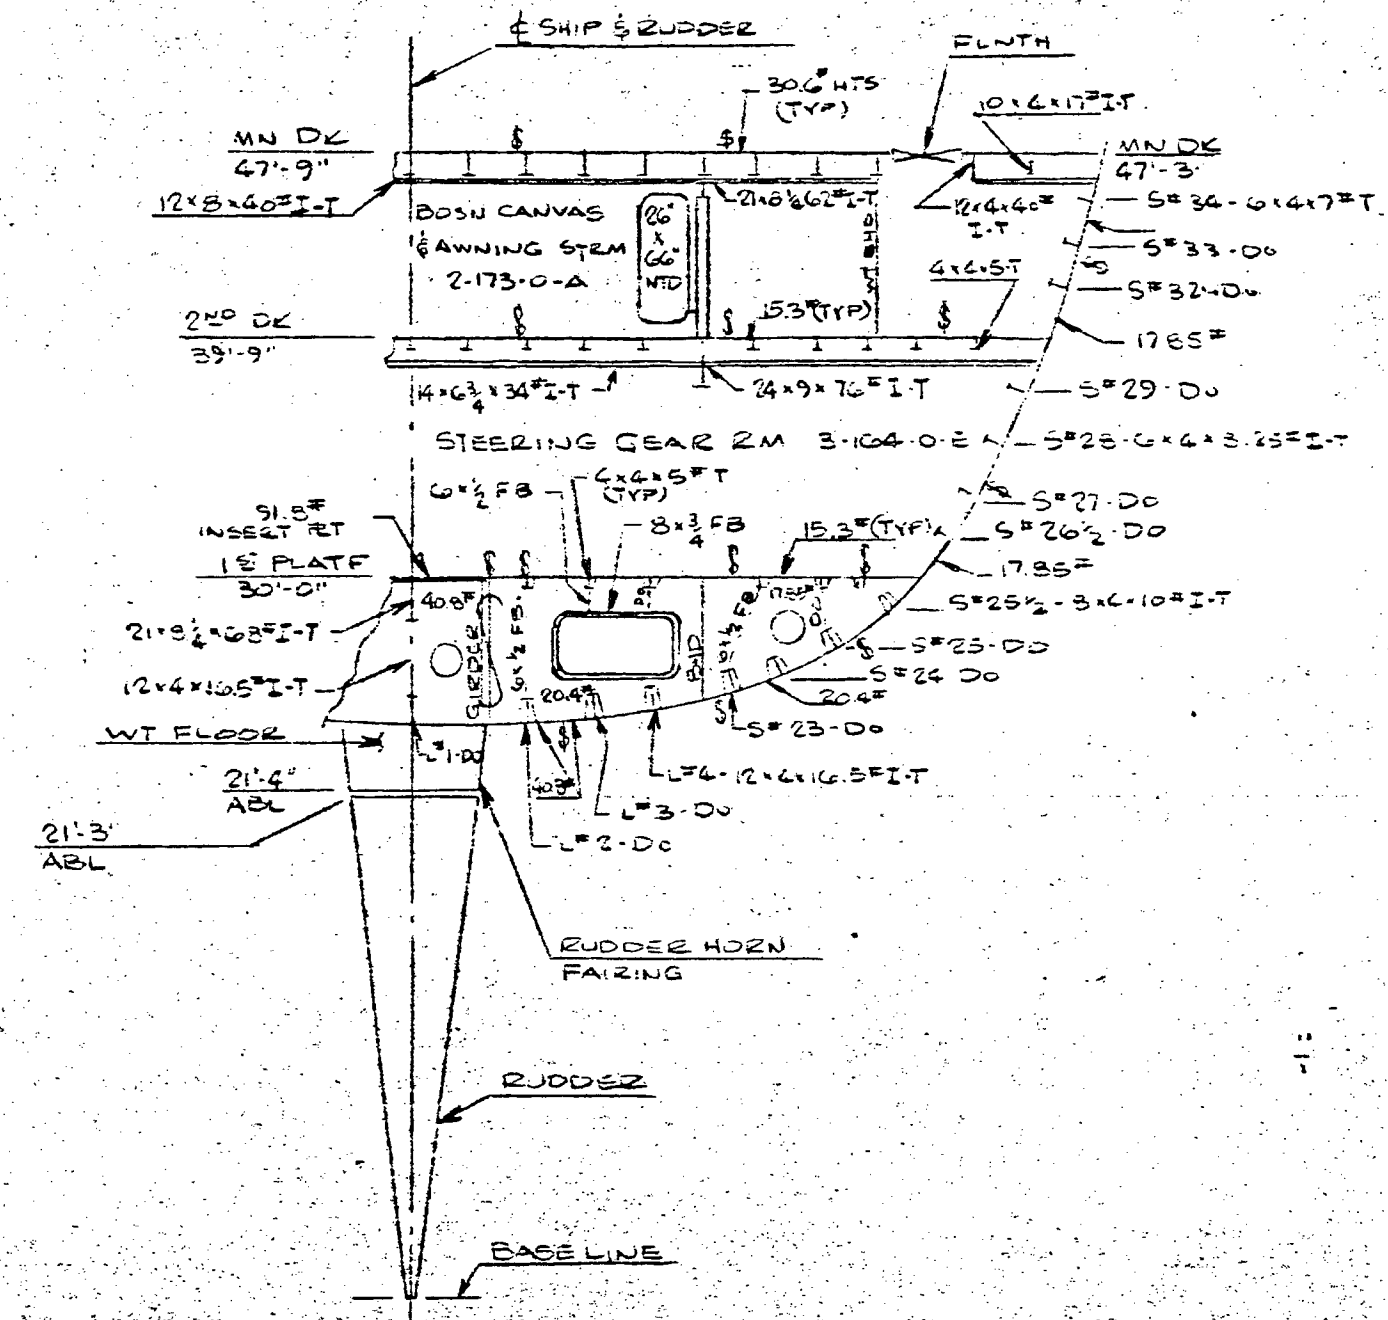 ℄ SHIP & RUDDER
FLNTH
30.6# HTS
(TYP)
10×4×17# I-T
MN DK
47'-9"
MN DK
47'-3"
12×8×40# I-T
BOSN CANVAS
& AWNING STRM
2-173-0-A
26"
×
66"
NTD
21×8¼×62# I-T
12×4×40#
I-T
S#34-6×4×7# T
S#33-DO
S#32-DO
4×4×5-T
2ND DK
39'-9"
15.3# (TYP)
17.85#
14×6¾×34# I-T
24×9×76# I-T
S#29-DO
STEERING GEAR RM 3-164-0-E
S#28-6×4×8.25# I-T
6×½ FB
4×4×5# T
(TYP)
S#27-DO
51.8#
INSERT PLT
8×¾ FB
15.3# (TYP)
S#26½-DO
1ST PLATF
30'-0"
17.85#
40.8#
17.85#
S#25½-8×4×10# I-T
21×8¼×68# I-T
GIRDER
6×½ FB
BHD
S#25-DO
12×4×16.5# I-T
20.4#
S#24 DO
20.4#
WT FLOOR
L#1-DO
S#23-DO
21'-4"
ABL
40.8#
L#4-12×4×16.5# I-T
L#3-DO
21'-3"
ABL
L#2-DO
RUDDER HORN
FAIRING
RUDDER
BASE LINE